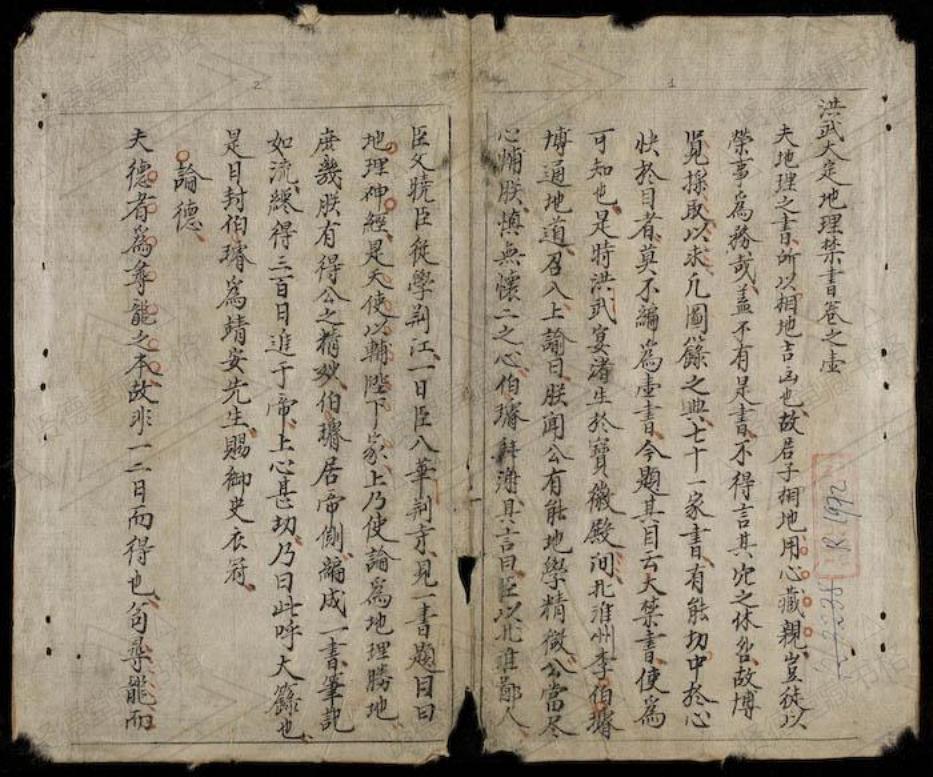 洪武大定地理禁書卷之壺
夫地理之書所以相地吉凶也故居子相地用心藏親豈徒以
榮事爲務哉盖不有是書不得言其穴之休咎故博
覓採取以求凡圖籙之典七十一家書有能切中於心
快於目者莫不編爲壺書今題其目云大禁書使爲
可知也是時洪武宴渚生於寶徽殿洞北淮州李伯
博通地道召入上諭曰朕聞公有能地學精微公當尽
心悑朕慎無懷二之心伯拜謝具言曰臣以北淮鄭人
臣父曉臣從學荆江一日臣入華荆寺見一書題目曰
地理神經是天使以輔陛下家上乃使論爲地理勝地
庶幾朕有得公之精妙伯居帝側編成一書筆記
如流纔得三百日進于帝上心甚切乃曰此呼大籙也
是日封伯爲靖安先生賜御史衣冠
論德
夫德者爲尋龍之本故非一二日而得也苟尋龍而
1
2
R.1992